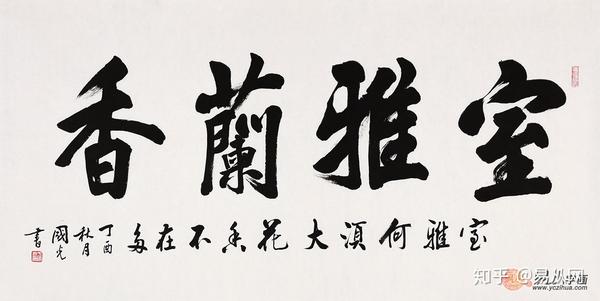 室雅蘭香
室雅何須大花香不在多
丁酉
秋月
國光
書
知乎 @易从网
www.yczihua.com